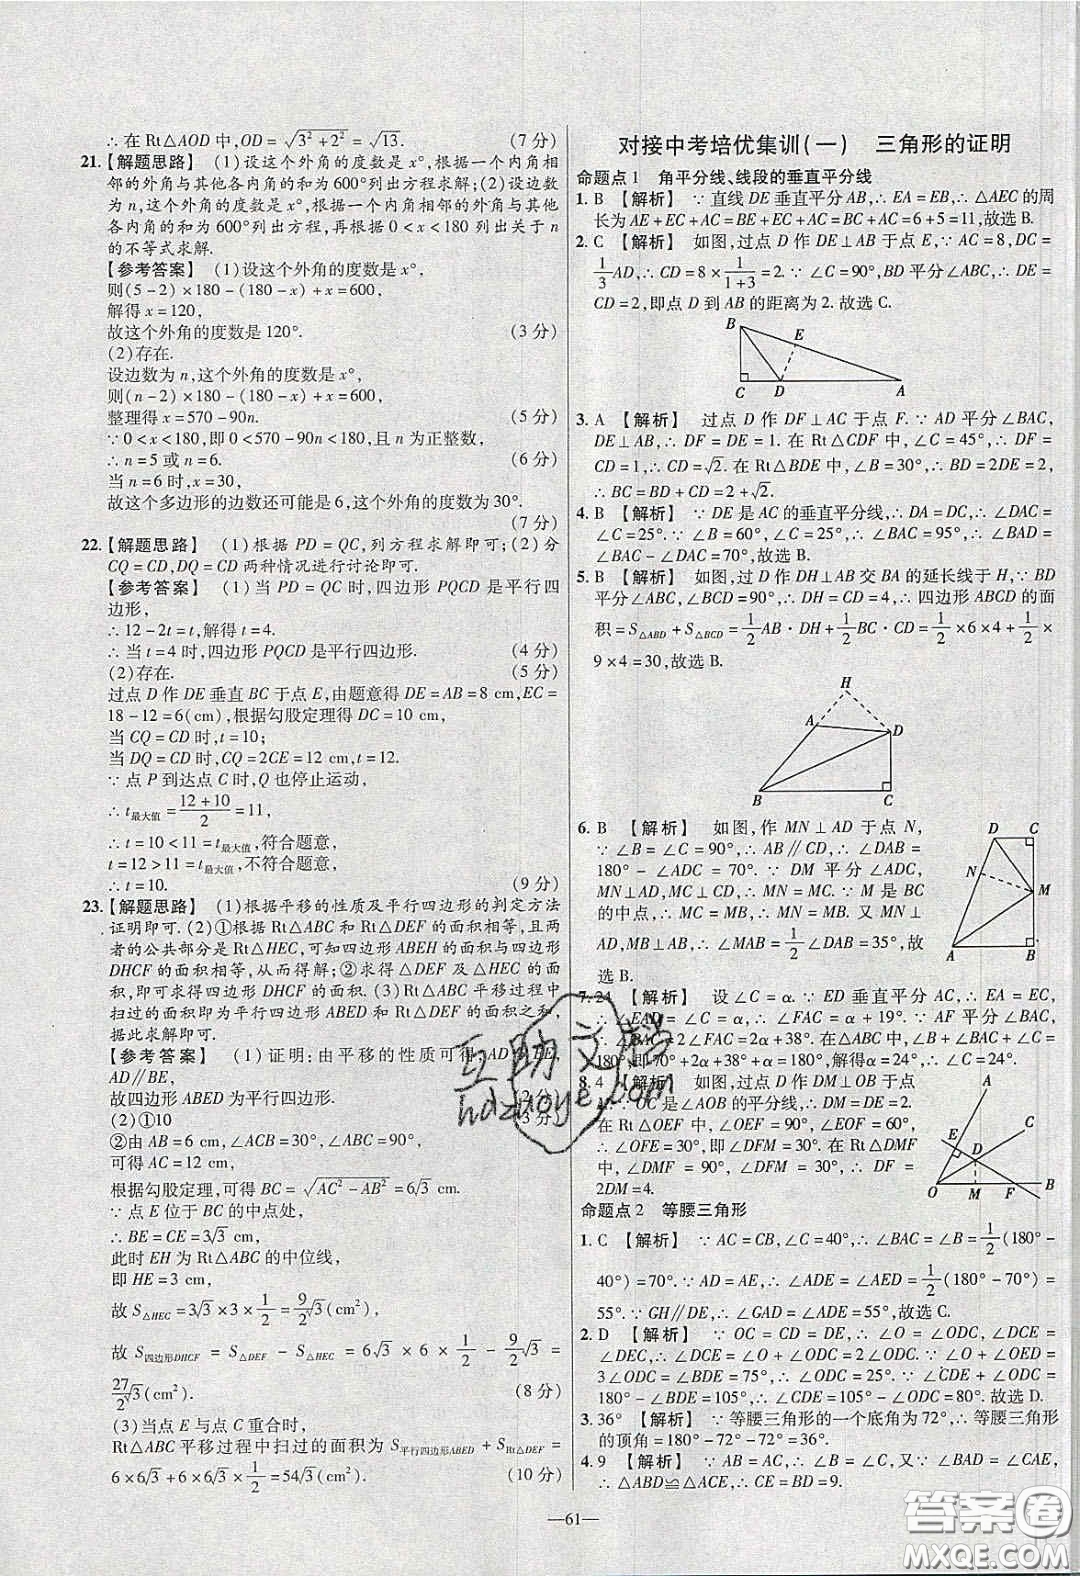 ∴ 在 Rt△AOD 中,OD = √(3²+2²) = √13. (7 分)
21.【解题思路】 (1)设这个外角的度数是 x°,根据一个内角相
邻的外角与其他各内角的和为 600°列出方程求解;(2)设边
数为 n,这个外角的度数是 x°,根据一个内角相邻的外角与其他
各内角的和为 600°列出方程,再根据 0 < x < 180 列出关于 n
的不等式求解.
【参考答案】 (1)设这个外角的度数是 x°,
则(5-2)×180-(180-x)+x=600,
解得 x=120,
故这个外角的度数是 120°. (3 分)
(2)存在.
设边数为 n,这个外角的度数是 x°,
则(n-2)×180-(180-x)+x=600,
整理得 x=570-90n. (5 分)
∵ 0<x<180,即 0<570-90n<180,且 n 为正整数,
∴ n=5 或 n=6. (6 分)
当 n=6 时,x=30,
故这个多边形的边数还可能是 6,这个外角的度数为 30°.
(7 分)
22.【解题思路】 (1)根据 PD = QC,列方程求解即可;(2)分
CQ=CD,DQ=CD 两种情况进行讨论即可.
【参考答案】 (1)当 PD = QC 时,四边形 PQCD 是平行四
边形,
∴ 12-2t=t,解得 t=4.
∴ 当 t=4 时,四边形 PQCD 是平行四边形. (4 分)
(2)存在. (5 分)
过点 D 作 DE 垂直 BC 于点 E,由题意得 DE = AB = 8 cm,EC=
18-12=6(cm),根据勾股定理得 DC=10 cm,
当 CQ=CD 时,t=10;
当 DQ=CD 时,CQ=2CE=12 cm,t=12.
∵ 点 P 到达点 C 时,Q 也停止运动,
∴ t最大值 = (12+10)/2 = 11,
∴ t=10<11=t最大值,符合题意,
t=12>11=t最大值,不符合题意,
∴ t=10. (9 分)
23.【解题思路】 (1)根据平移的性质及平行四边形的判定方法
证明即可. (2)①根据 Rt△ABC 和 Rt△DEF 的面积相等,且两
者的公共部分是 Rt△HEC,可知四边形 ABEH 的面积与四边形
DHCF 的面积相等,从而得解;②求得 △DEF 及△HEC 的面
积,即可求得四边形 DHCF 的面积. (3)Rt△ABC 平移过程中
扫过的面积即为平行四边形 ABED 和 Rt△DEF 的面积之和,
据此求解即可.
【参考答案】 (1)证明:由平移的性质可得,AD=BE,
AD∥BE,
故四边形 ABED 为平行四边形. (3 分)
(2)①10
②由 AB=6 cm,∠ACB=30°,∠ABC=90°,
可得 AC=12 cm,
根据勾股定理,可得 BC=√(AC²-AB²)=6√3 cm.
∵ 点 E 位于 BC 的中点处,
∴ BE=CE=3√3 cm,
此时 EH 为 Rt△ABC 的中位线,
即 HE=3 cm,
故 S△HEC = 3√3×3×1/2 = 9/2√3(cm²),
故 S四边形DHCF = S△DEF - S△HEC = 6√3 × 6 × 1/2 - 9/2√3 =
27/2√3(cm²). (8 分)
(3)当点 E 与点 C 重合时,
Rt△ABC 平移过程中扫过的面积为 S平行四边形ABED + SRt△DEF =
6×6√3+6×6√3×1/2=54√3(cm²). (10 分)
对接中考培优集训(一) 三角形的证明
命题点 1 角平分线、线段的垂直平分线
1. B 【解析】 ∵ 直线 DE 垂直平分 AB,∴ EA = EB,∴ △AEC 的周
长为 AE+EC+AC=BE+EC+AC=BC+AC=6+5=11,故选 B.
2. C 【解析】 如图,过点 D 作 DE⊥AB 于点 E,∵ AC=8,DC=
1/3AD,∴ CD=8×1/(1+3)=2.∵ ∠C=90°,BD 平分∠ABC,∴ DE=
CD=2,即点 D 到 AB 的距离为 2.故选 C.
B
E
C D A
3. A 【解析】 过点 D 作 DF⊥AC 于点 F. ∵ AD 平分∠BAC,
DE⊥AB,∴ DF=DE=1.在 Rt△CDF 中,∠C=45°,∴ DF=
CD=1,∴ CD=√2.在 Rt△BDE 中,∠B=30°,∴ BD=2DE=2,
∴ BC=BD+CD=2+√2.
4. B 【解析】 ∵ DE 是 AC 的垂直平分线,∴ DA = DC,∴ ∠DAC
=∠C=25°.∵ ∠B=60°,∠C=25°,∴ ∠BAC=95°,∴ ∠BAD
=∠BAC-∠DAC=70°,故选 B.
5. B 【解析】 如图,过 D 作 DH⊥AB 交 BA 的延长线于 H,∵ BD
平分∠ABC,∠BCD=90°,∴ DH=CD=4,∴ 四边形 ABCD 的面
积=S△ABD+S△BCD=1/2AB·DH+1/2BC·CD=1/2×6×4+1/2×
9×4=30,故选 B.
H
A
D
B C
6. B 【解析】 如图,作 MN⊥AD 于点 N,
∵ ∠B=∠C=90°,∴ AB∥CD,∴ ∠DAB=
180°-∠ADC=70°.∵ DM 平分∠ADC,
MN⊥AD,MC⊥CD,∴ MN=MC.∵ M 是 BC
的中点,∴ MC=MB,∴ MN=MB,又 MN⊥
AD,MB⊥AB,∴ ∠MAB=1/2∠DAB=35°,故
选 B.
D C
N
M
A B
7. 24 【解析】 设∠C=α.∵ ED 垂直平分 AC,∴ EA=EC,
∴ ∠EAD=∠C=α,∴ ∠FAC=α+19°.∵ AF 平分∠BAC,
∴ ∠BAC=2∠FAC=2α+38°.在△ABC中,∵ ∠B+∠BAC+∠C=
180°,∴ 70°+2α+38°+α=180°,解得α=24°,∴ ∠C=24°.
8. 4 【解析】 如图,过点 D 作 DM⊥OB 于点
M,∵ OC 是∠AOB 的平分线,∴ DM=DE=2.
在 Rt△OEF 中,∠OEF=90°,∠EOF=60°,
∴ ∠OFE=30°,即∠DFM=30°.在 Rt△DMF
中,∠DMF=90°,∠DFM=30°,∴ DF=
2DM=4.
A
E
D
C
O M F B
命题点 2 等腰三角形
1. C 【解析】 ∵ AC=CB,∠C=40°,∴ ∠BAC=∠B=1/2(180°-
40°)=70°.∵ AD=AE,∴ ∠ADE=∠AED=1/2(180°-70°)=
55°.∵ GH∥DE,∴ ∠GAD=∠ADE=55°,故选 C.
2. D 【解析】 ∵ OC=CD=DE,∴ ∠O=∠ODC,∠DCE=
∠DEC,∴ ∠DCE=∠O+∠ODC=2∠ODC.∵ ∠O+∠OED=
3∠ODC=∠BDE=75°,∴ ∠ODC=25°.∵ ∠CDE+∠ODC=
180°-∠BDE=105°,∴ ∠CDE=105°-∠ODC=80°.故选 D.
3. 36° 【解析】 ∵ 等腰三角形的一个底角为 72°,∴ 等腰三角形
的顶角=180°-72°-72°=36°.
4. 9 【解析】 ∵ AB=AC,∴ ∠B=∠C,又∵ ∠BAD=∠CAE,
∴ △ABD≌△ACE,∴ CE=BD=9.
—61—
互助文档
hdzuoye.com
答案圈
MXQE.COM